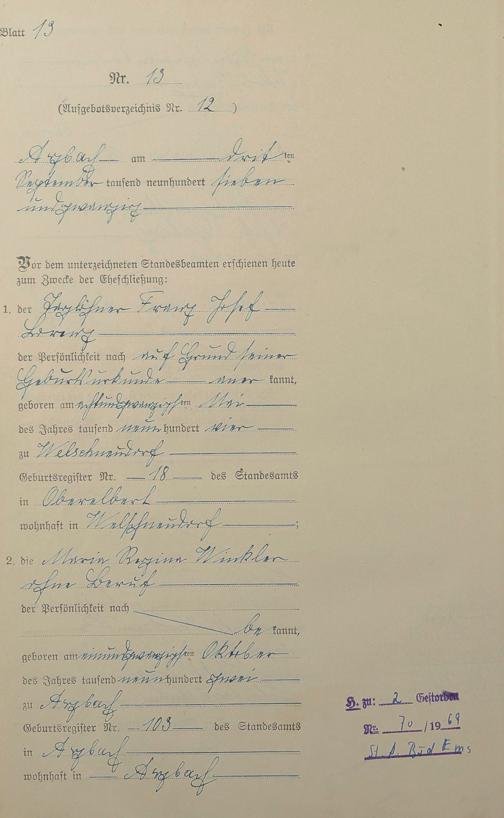 Blatt 13
Nr. 13
(Aufgebotsverzeichnis Nr. 12)
Arzbach am dritten
September tausend neunhundert sieben
undzwanzig
Vor dem unterzeichneten Standesbeamten erschienen heute
zum Zwecke der Eheschließung:
1. der Taglöhner Franz Josef
Lorenz
der Persönlichkeit nach auf Grund seiner
Geburtsurkunde aner kannt,
geboren am achtundzwanzigsten Mai
des Jahres tausend neunhundert vier
zu Welschneudorf
Geburtsregister Nr. 18 des Standesamts
in Oberelbert
wohnhaft in Welschneudorf;
2. die Maria Regina Winkler
ohne Beruf
der Persönlichkeit nach
be kannt,
geboren am einundzwanzigsten Oktober
des Jahres tausend neunhundert zwei
zu Arzbach
Geburtsregister Nr. 103 des Standesamts
in Arzbach
wohnhaft in Arzbach
H. zu: 2 Gestorben
Nr. 70 / 1969
St. A. Bad Ems